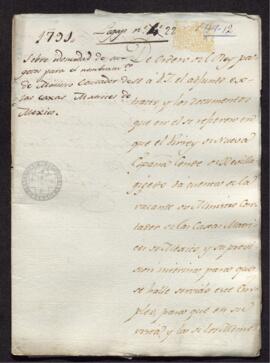 1791. Legajo nº 4 22 44-12
Sobre idoneidad de su-
getos para el nombram.to
de Ministro Contador de
las caxas Matrices de
Mexico.
De orden del Rey
paso a V.I. el adjunto ex-
tracto, y los documentos
que en él se refieren en
que el Virrey de Nueva
España Conde de Revilla
gigedo da cuenta de la
vacante de Ministro Con-
tador de las Caxas Matri-
ces de Mexico, y su provi-
sion interina para que
se halle servido este Em-
pleo, para que en su
vista, y